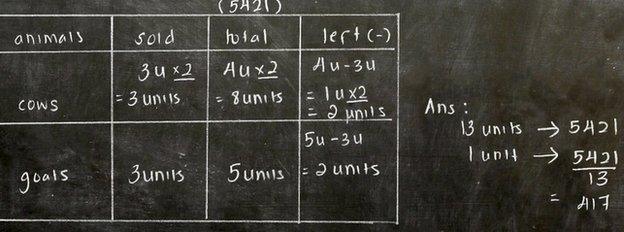 (5421)
animals sold total left (-)
cows
3u x2
= 3 units
4u x2
= 8 units
4u - 3u
= 1u x2
= 2 units
goats 3 units 5 units
5u - 3u
= 2 units
Ans :
13 units → 5421
1 unit → 5421
13
= 417